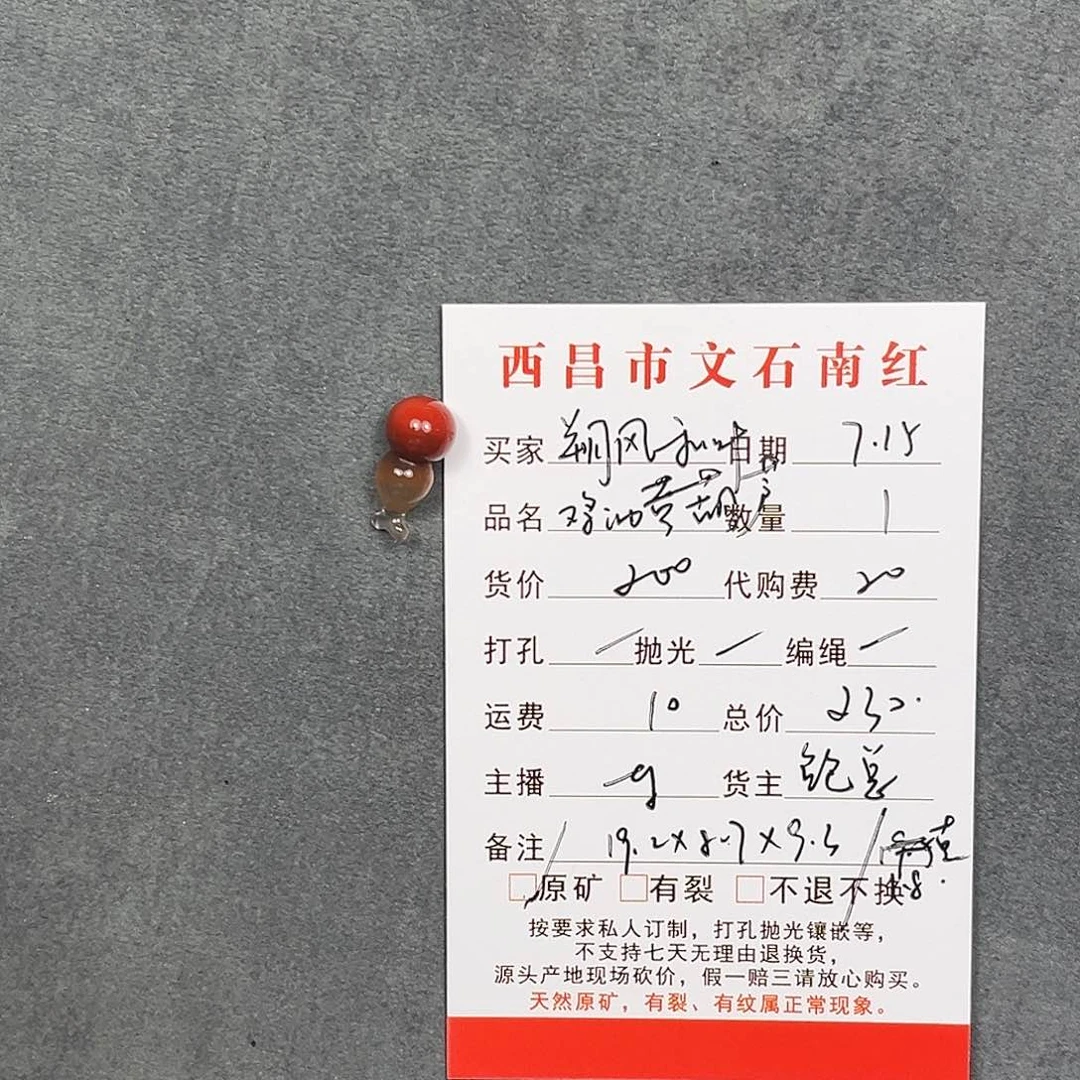 西昌市文石南红
买家 朔风 日期 7.15
品名 鸡油黄葫芦 数量 1
货价 200 代购费 20
打孔 / 抛光 / 编绳 /
运费 10 总价 230.
主播 g 货主 鲍总
备注 / 19.2×8.7×9.3 / 克
□原矿 □有裂 □不退不换
按要求私人订制，打孔抛光镶嵌等，
不支持七天无理由退换货，
源头产地现场砍价，假一赔三请放心购买。
天然原矿，有裂、有纹属正常现象。